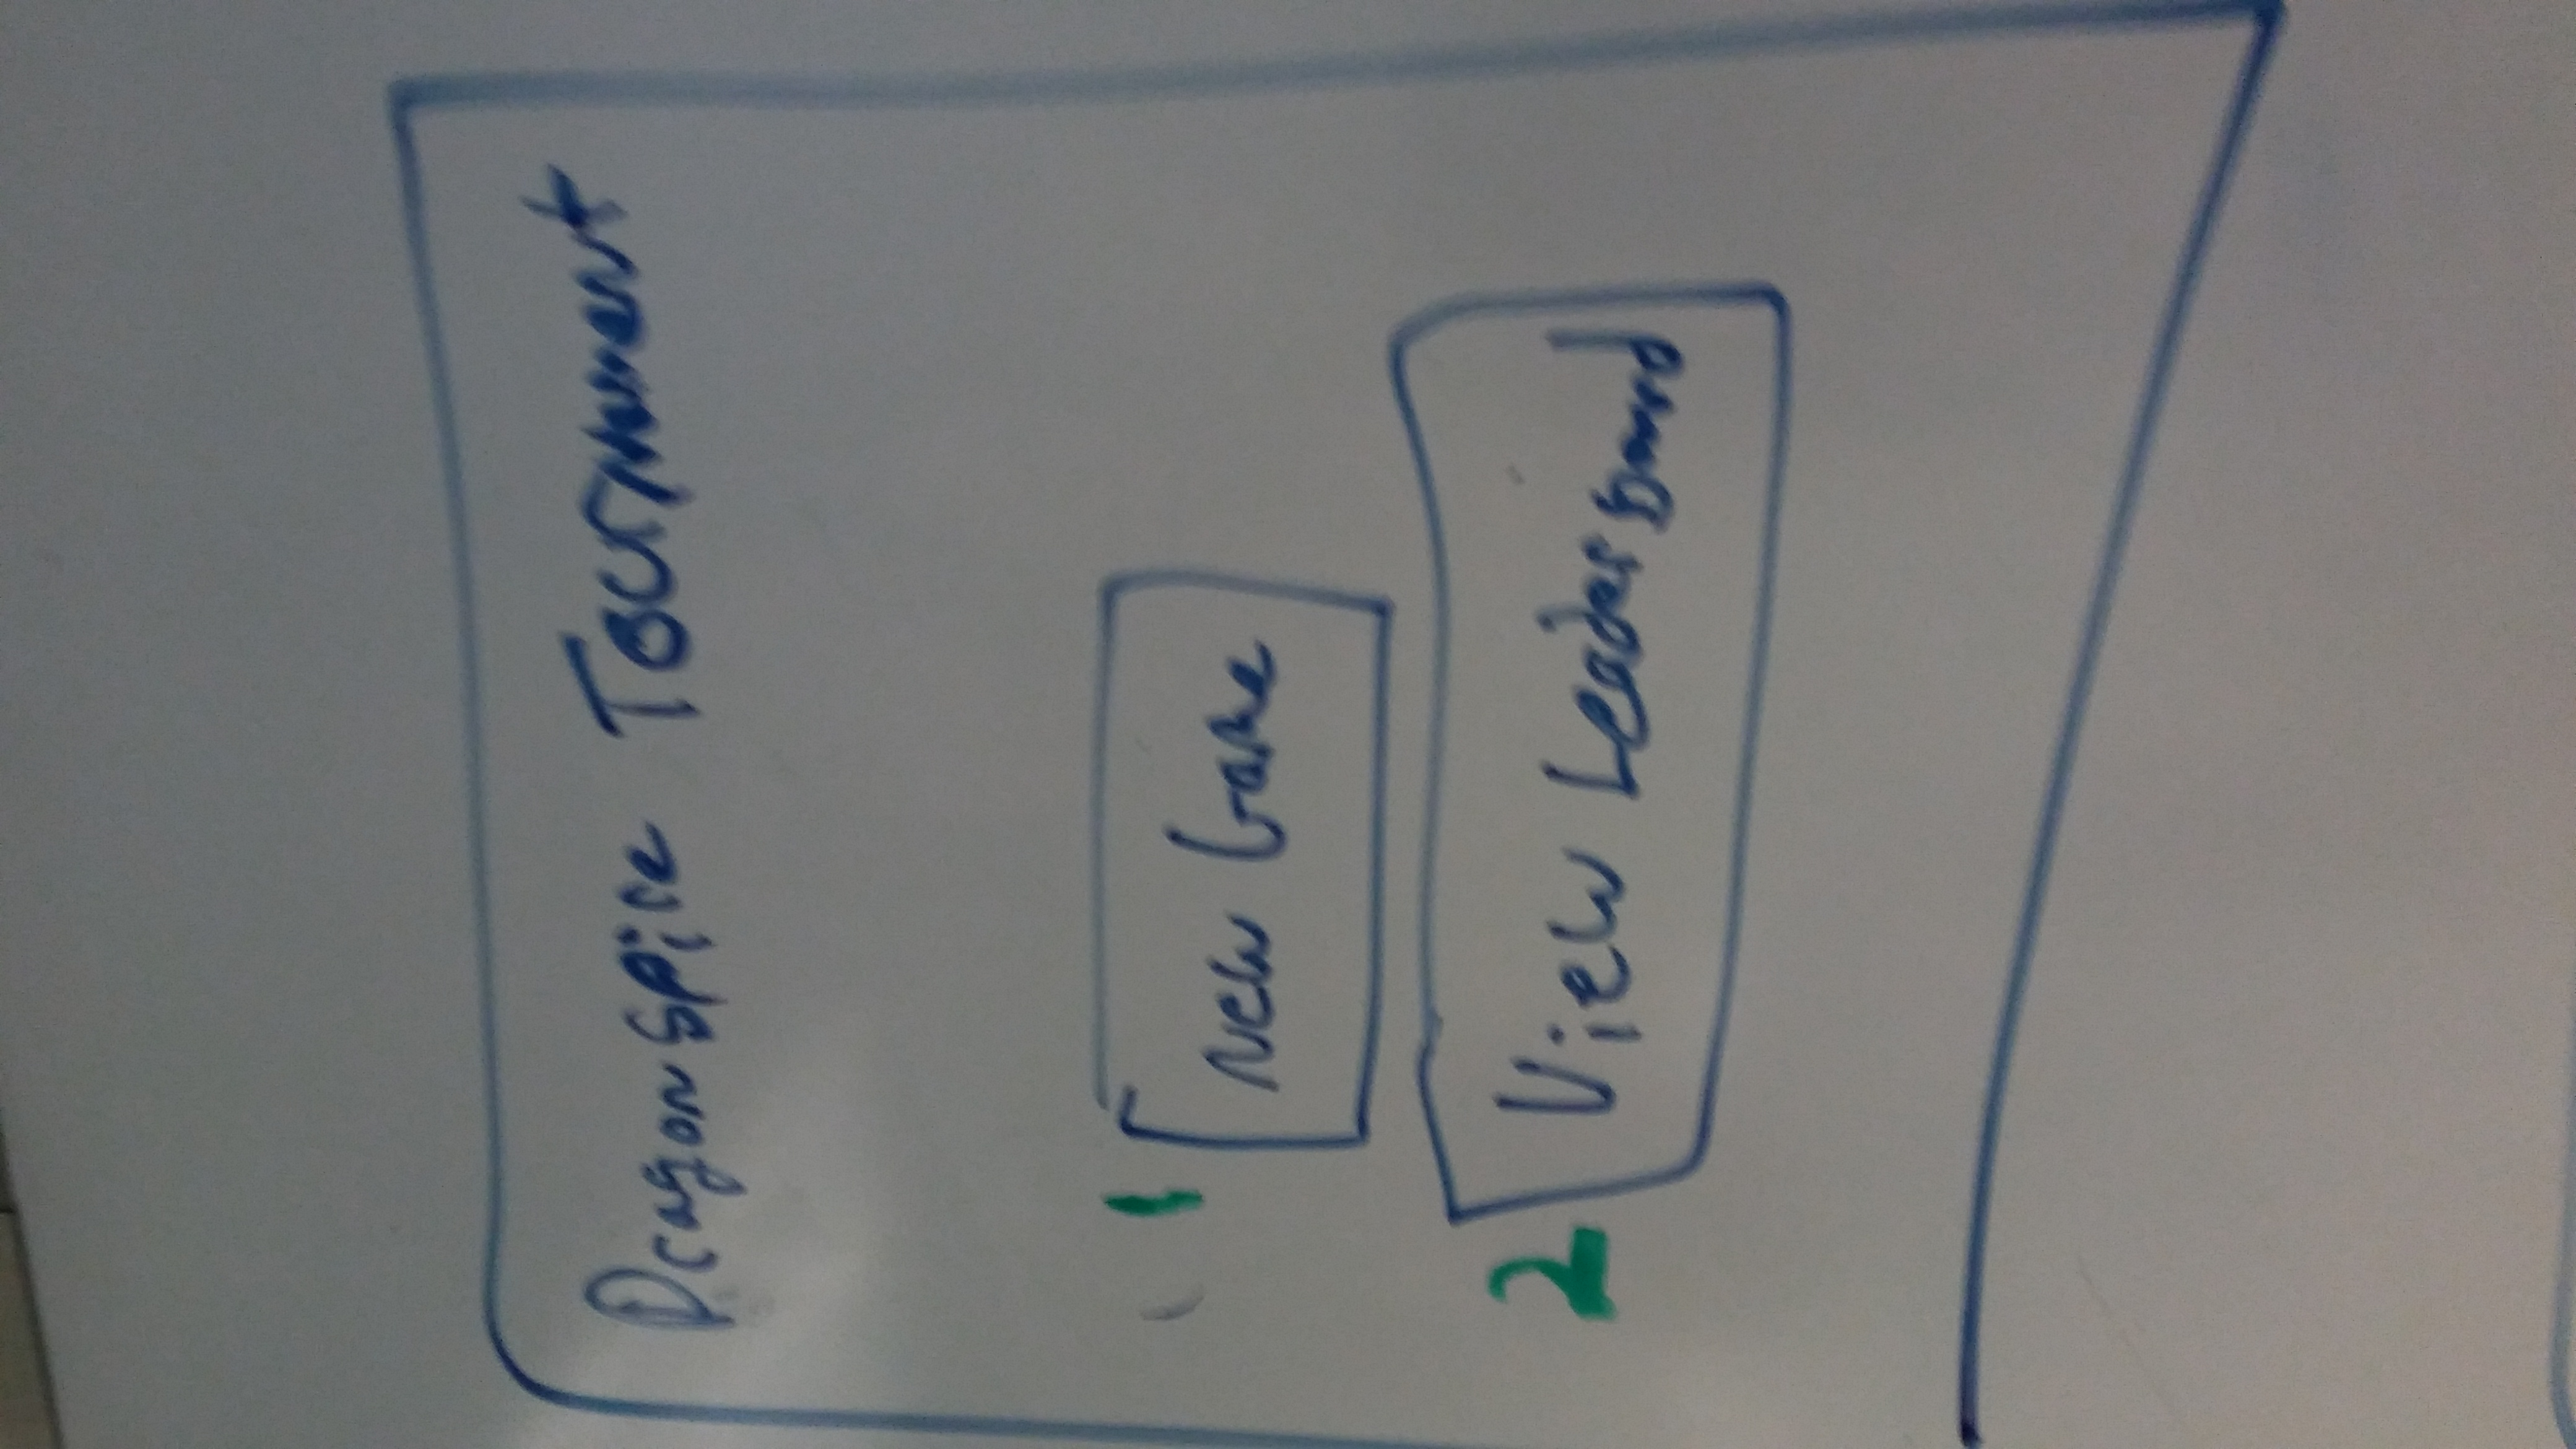 Dragon Spire Tournament
1 New Game
2 View Leader Board